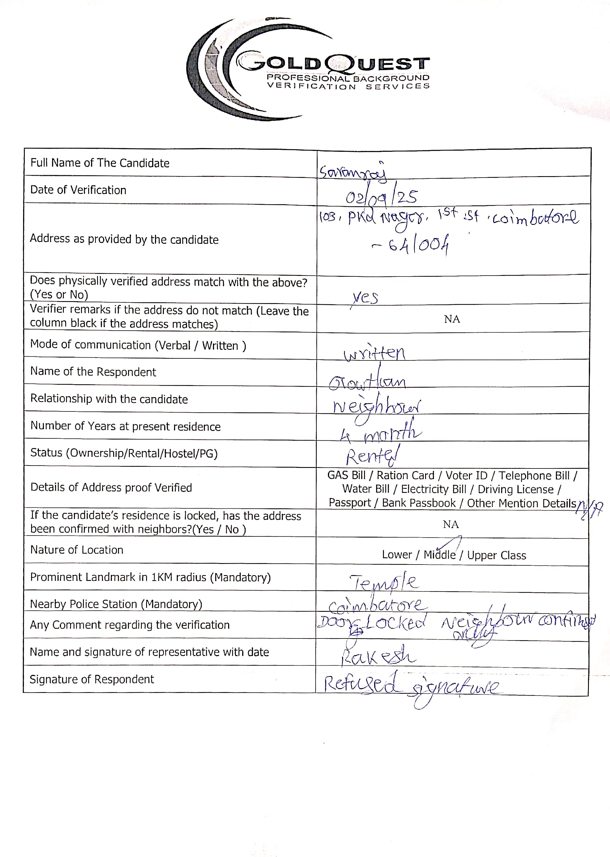 GOLDQUEST
PROFESSIONAL BACKGROUND
VERIFICATION SERVICES
Full Name of The Candidate
Saranraj
Date of Verification
02/09/25
Address as provided by the candidate
103, PKd Nagar, 1st .st . Coimbatore
- 641004
Does physically verified address match with the above?
(Yes or No)
yes
Verifier remarks if the address do not match (Leave the
column black if the address matches)
NA
Mode of communication (Verbal / Written )
written
Name of the Respondent
Relationship with the candidate
Neighbour
Number of Years at present residence
4 month
Status (Ownership/Rental/Hostel/PG)
Rental
Details of Address proof Verified
GAS Bill / Ration Card / Voter ID / Telephone Bill /
Water Bill / Electricity Bill / Driving License /
Passport / Bank Passbook / Other Mention Details N/A
If the candidate's residence is locked, has the address
been confirmed with neighbors?(Yes / No )
NA
Nature of Location
Lower / Middle / Upper Class
Prominent Landmark in 1KM radius (Mandatory)
Temple
Nearby Police Station (Mandatory)
Coimbatore
Any Comment regarding the verification
Door Locked Neighbour confirmed
only
Name and signature of representative with date
Rakesh
Signature of Respondent
Refused signature